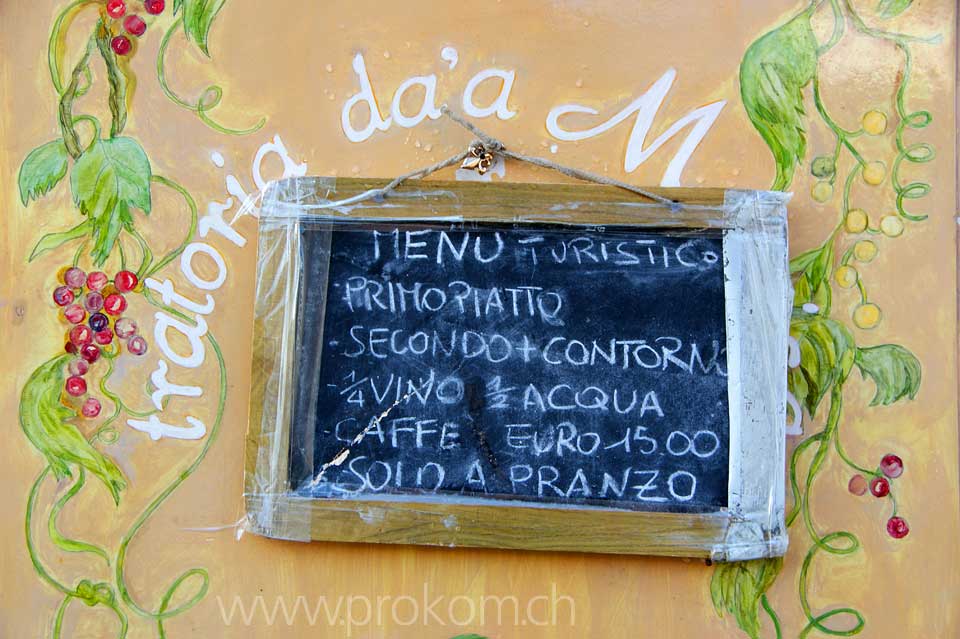 trattoria da'a M
MENU TURISTICO
-PRIMO PIATTO
-SECONDO+CONTORNO
-1/4 VINO 1/2 ACQUA
-CAFFE EURO 15.00
-SOLO A PRANZO
www.prokom.ch